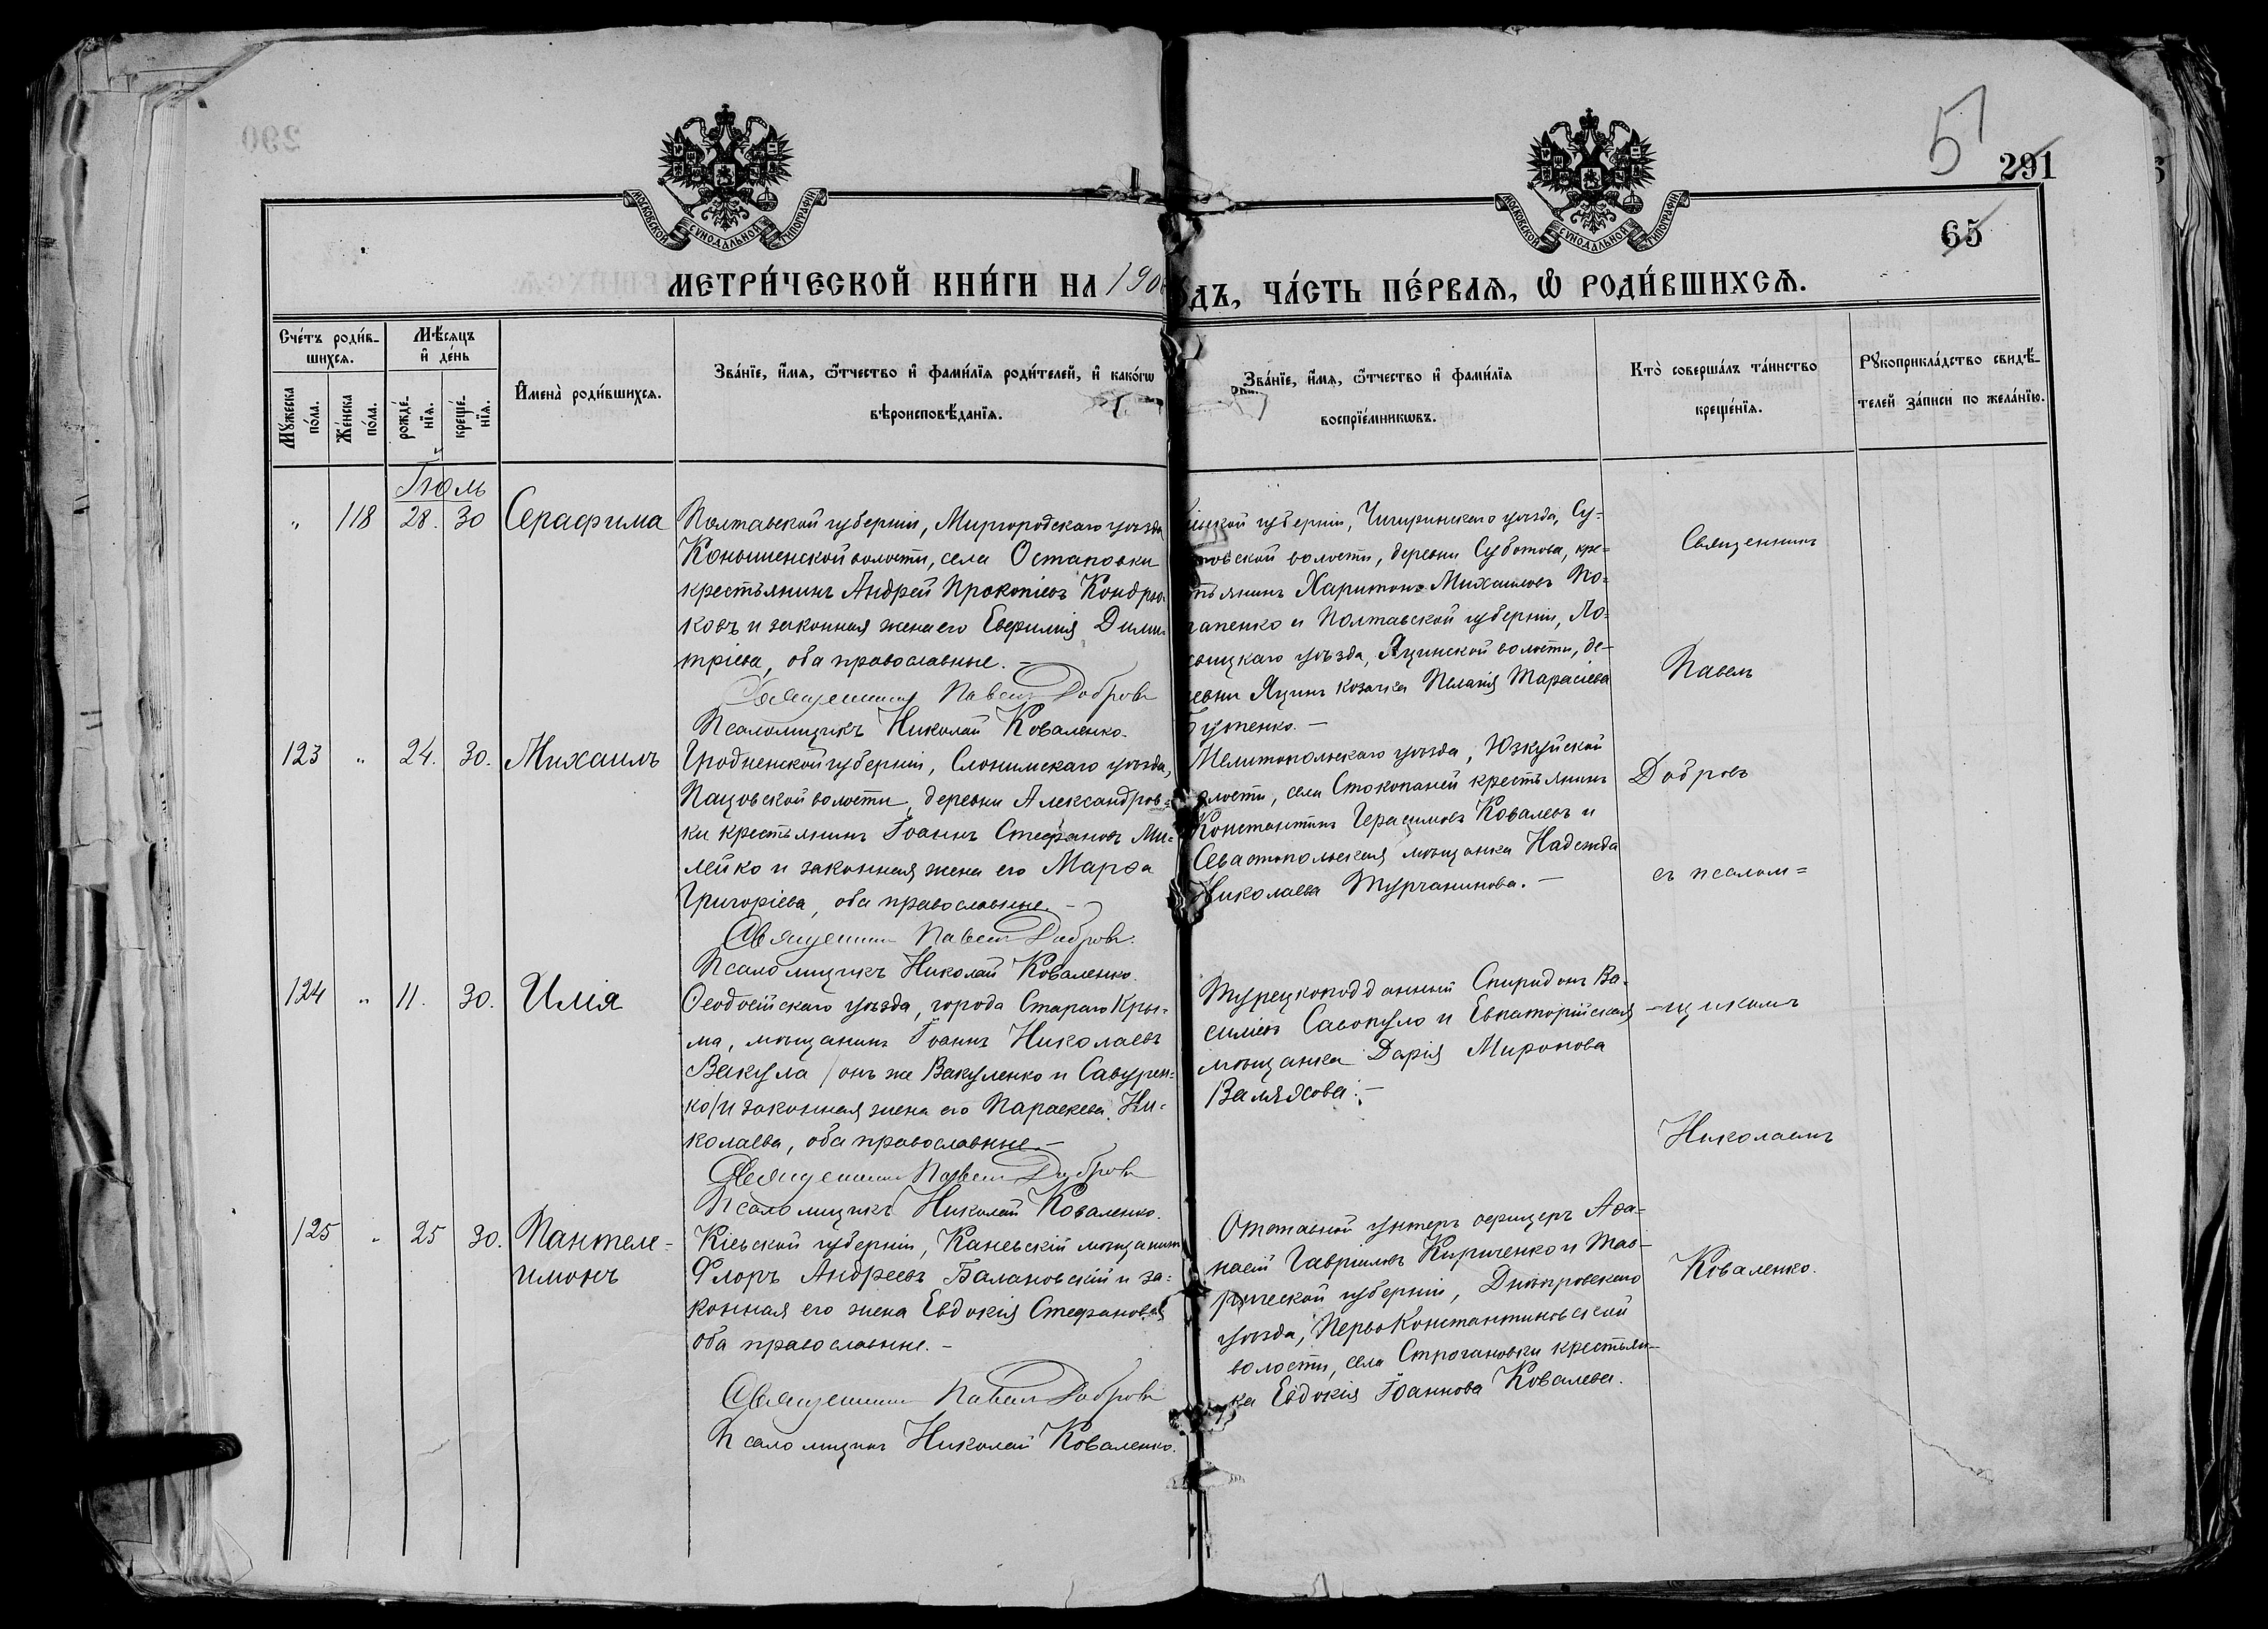 57
291
65
МОСКОВСКОЙ СѴНОДАЛЬНОЙ ТИПОГРАФІИ
МОСКОВСКОЙ СѴНОДАЛЬНОЙ ТИПОГРАФІИ
МЕТРИ́ЧЕСКОЙ КНИ́ГИ НА 190
ДЪ, ЧА́СТЬ ПЕ́РВАѦ, Ѽ РОДИ́ВШИХСѦ.
Сче́тъ роди́в-
шихсѧ.
Мꙋжеска по́ла.
Же́нска по́ла.
Мѣ́сяцъ
и҆ де́нь
рожде́-нїѧ.
креще́-нїѧ.
И҆мена̀ роди́вшихсѧ.
Зва́нїе, и҆́мѧ, ѻ҆́тчество и҆ фами́лїѧ роди́телей, и҆ како́гѡ
вѣроисповѣ́данїѧ.
Зва́нїе, и҆́мѧ, ѻ҆́тчество и҆ фами́лїѧ
воспрїе́мникѡвъ.
Кто̀ соверша́лъ та́инство
креще́нїѧ.
Рꙋкоприкла́дство свидѣ́-
телей за́писи по жела́нїю.
Іюль
" 118 28. 30 Серафима
Полтавской губерніи, Миргородскаго уѣзда
Коньшенской волости, села Остаповки
крестьянинъ Андрей Прокопіевъ Кондрю-
ковъ и законная жена его Евфимія Дими-
тріева, оба православные. –
Священникъ Павелъ Добровъ
Псаломщикъ Николай Коваленко.
нской губерніи, Чигиринскаго уѣзда, Су-
товской волости, деревни Суботова, кре-
стьянинъ Харитонъ Михаиловъ По-
тапенко и Полтавской губерніи, Ло-
хвицкаго уѣзда, Яцинской волости, де-
ревни Яцинъ козачка Пелагія Тарасіева
Бутенко. –
123 " 24. 30. Михаилъ
Гродненской губерніи, Слонимскаго уѣзда,
Пацовской волости, деревни Александров-
ки крестьянинъ Іоаннъ Стефановъ Ми-
лейко и законная жена его Марѳа
Григоріева, оба православные. –
Священникъ Павелъ Добровъ.
Псаломщикъ Николай Коваленко.
Мелитопольскаго уѣзда, Юзкуйской
волости, села Стокопаней крестьянинъ
Константинъ Герасимовъ Ковалевъ и
Севастопольская мѣщанка Надежда
Николаева Турчанинова. –
124 " 11. 30. Илія
Ѳеодосійскаго уѣзда, города Стараго Кры-
ма, мѣщанинъ Іоаннъ Николаевъ
Вакула /онъ же Вакуленко и Савурен-
ко/ и законная жена его Параскева Ни-
колаева, оба православные. –
Священникъ Павелъ Добровъ
Псаломщикъ Николай Коваленко.
Турецкоподданный Спиридонъ Ва-
силіевъ Савопуло и Евпаторійская
мѣщанка Дарія Миронова
Валяхова. –
125 " 25 30. Пантеле-
имонъ
Кіевской губерніи, Каневскій мѣщанинъ
Флоръ Андреевъ Балановскій и за-
конная его жена Евдокія Стефанова
оба православные. –
Священникъ Павелъ Добровъ
Псаломщикъ Николай Коваленко.
Отставной унтеръ офицеръ Аѳа-
насій Гавріиловъ Кириченко и Тав-
рической губерніи, Днѣпровскаго
уѣзда, Перво Константиновской
волости, села Строгановки крестьян-
ка Евдокія Іоаннова Ковалева.
Священникъ
Павелъ
Добровъ
съ псалом=
-щикомъ
Николаемъ
Коваленко.